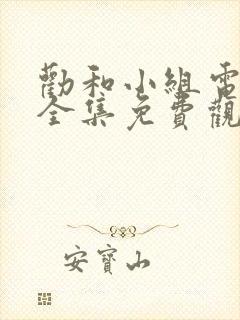 勸和小組電
全集免費觀
安寶山